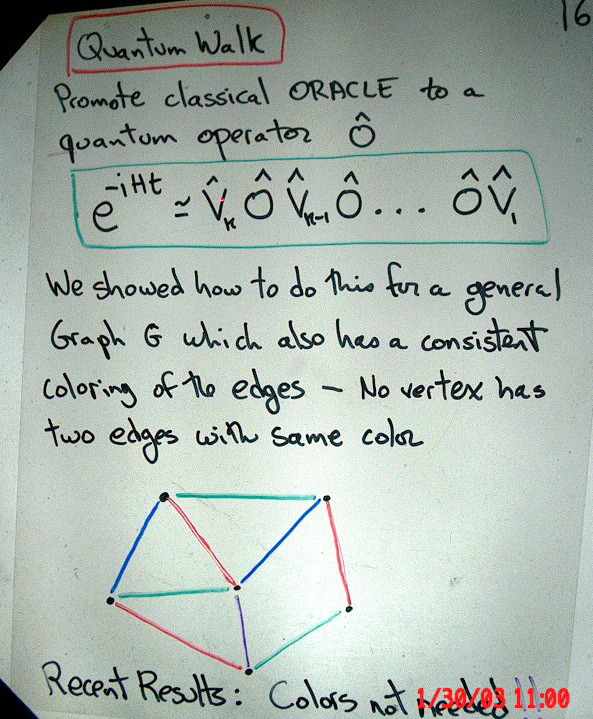 16
Quantum Walk
Promote classical ORACLE to a
quantum operator Ô
e^{-iHt} ≃ V̂_k Ô V̂_{k-1} Ô ... Ô V̂_1
We showed how to do this for a general
Graph G which also has a consistent
coloring of the edges – No vertex has
two edges with same color
Recent Results: Colors not needed!!
1/30/03 11:00